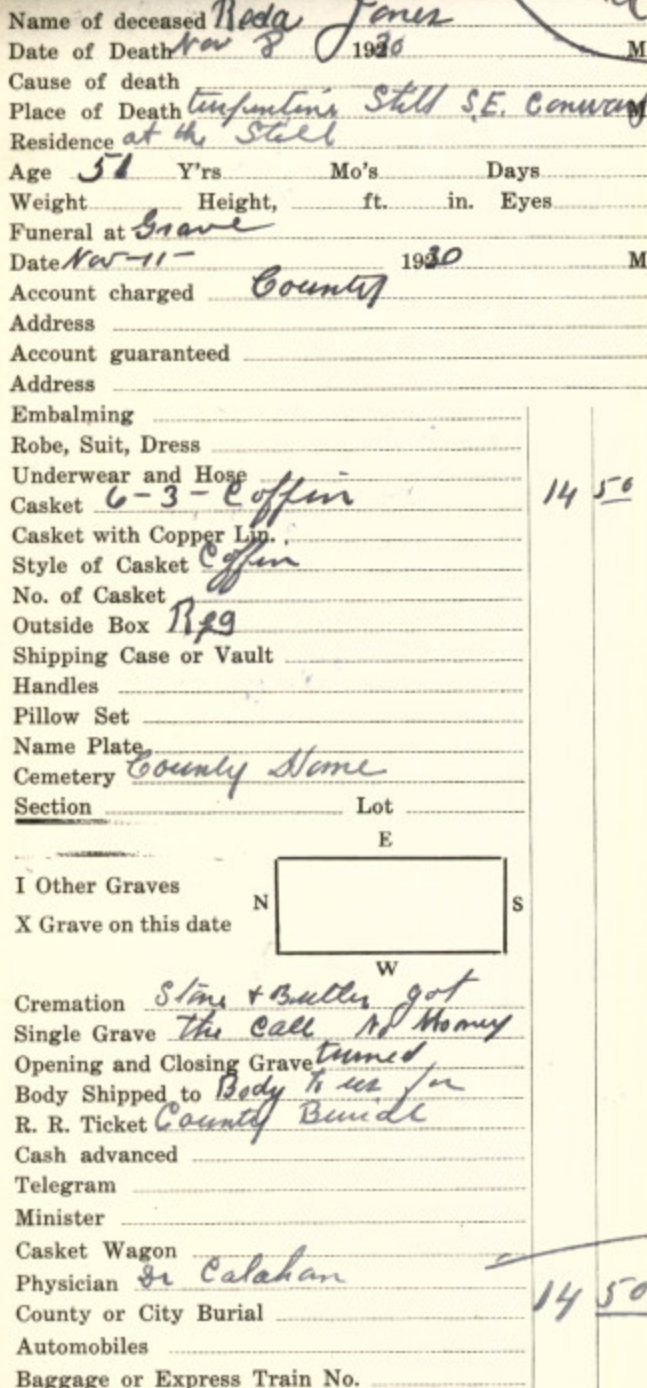 Name of deceased Roda Jones
Date of Death Nov 8 1930 M
Cause of death
Place of Death turpentine Still S.E. Conway M
Residence at the Still
Age 51 Y'rs. Mo's. Days
Weight Height, ft. in. Eyes
Funeral at Grave
Date Nov-11- 1930 M
Account charged County
Address
Account guaranteed
Address
Embalming
Robe, Suit, Dress
Underwear and Hose
Casket 6-3- Coffin 14 50
Casket with Copper Lin.
Style of Casket Coffin
No. of Casket
Outside Box
Shipping Case or Vault
Handles
Pillow Set
Name Plate
Cemetery County Home
Section Lot
E
I Other Graves
N S
X Grave on this date
W
Cremation Stine & Butler got
Single Grave the Call No Money
Opening and Closing Grave turned
Body Shipped to Body to us for
R. R. Ticket County Burial
Cash advanced
Telegram
Minister
Casket Wagon
Physician Dr Calahan
County or City Burial 14 50
Automobiles
Baggage or Express Train No.